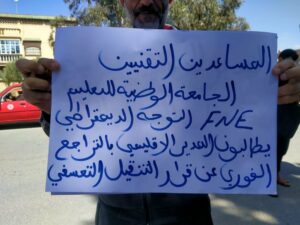 المساعدين التقنيين
الجامعة الوطنية للتعليم
FNE التوجه الديمقراطي
يطالبون المدير الاقليمي بالتراجع
الفوري عن قرار التنقيل والتعسفي